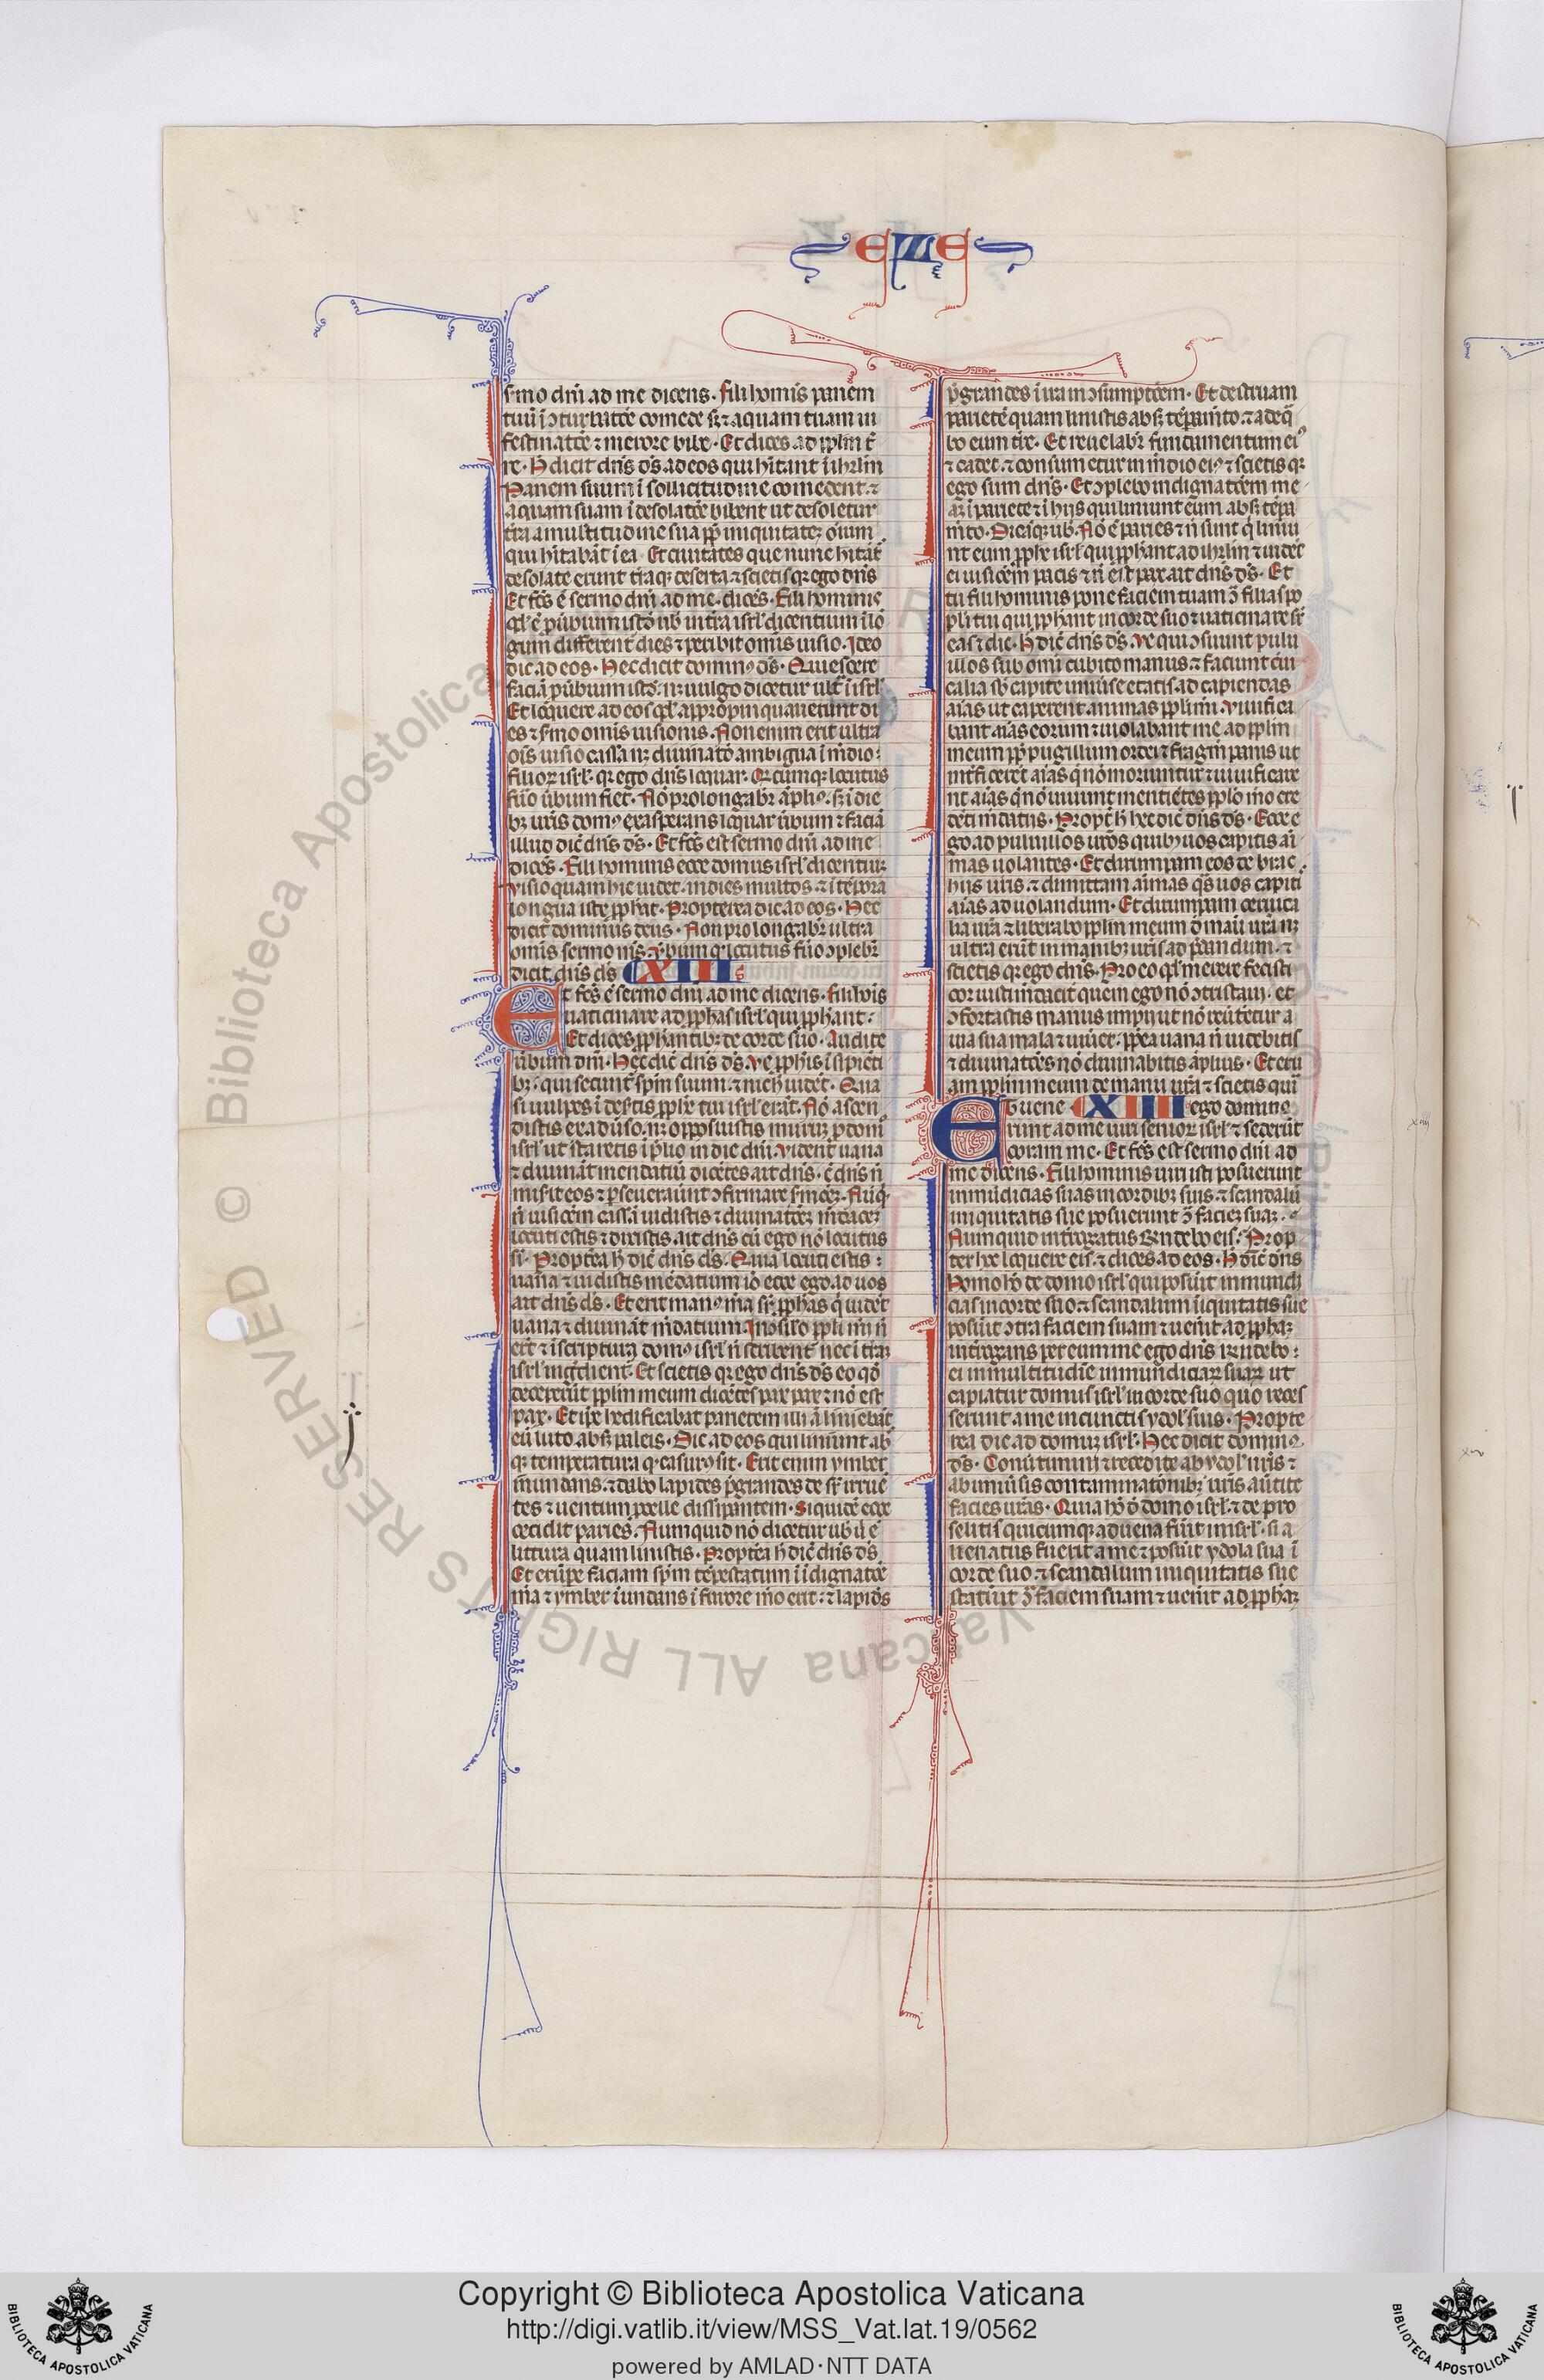 EZE
s̄mo dñi ad me dicens. fili homīs panem
tuū ī ɔturbatōe comede sꝫ ⁊ aquam tuam in
festinatōe ⁊ merore bibe. Et dices ad ppl̄m t̄
re. h̄ dicit dñs ds̄ ad eos qui hītant ī ihrl̄m
Panem suum ī sollicitudine comedent. ⁊
aquam suam ī desolatōe bibent ut desoletur
t̄ra a multitudine sua ꝓp̄ iniquitatez oīum
qui hītabāt ī ea. Et ciuitates que nunc hītāt̄
desolate erunt t̄raqꝫ deserta ⁊ scietis qꝛ ego dñs
Et fc̄s ē sermo dñi ad me. dicēs. Fili hominis
qd̄ ē ꝓūbium istō uob̄ in t̄ra isrl̄ dicentium ī lō
gum different̄ dies ⁊ peribit omīs uisio. Ideo
dic ad eos. Hec dicit dominꝰ ds̄. Quiescere
faciā ꝓūbium istō. nꝫ uulgo dicetur ult̄ ī isrl̄
Et loquere ad eos qd̄ appropinquauerunt di
es ⁊ s̄mo omīs uisionis. Non enim erit ultra
oīs uisio cassa nꝫ diuinatō ambigua ī medio
filioꝝ isrl̄. qꝛ ego dñs loquar. Q̄cumqꝫ locutus
fūo ūbum fiet. Nō prolongabr̄ āpliꝰ. sꝫ ī die
bꝫ uris̄ domꝰ exasperans loquar ūbum ⁊ faciā
illud dic̄ dñs ds̄. Et fc̄s est sermo dñi ad me
dicēs. Fili hominis ecce domus isrl̄ dicentiuꝫ
visio quam hic uidet. in dies multos. ⁊ ī tēpora
longua iste ꝓphat̄. Propterea dic ad eos. Hec
dicit dominus deus. Non prolongabr̄ ultra
omīs sermo m̄s. ūbum qd̄ locutus fūo ɔplebr̄
dicit dñs ds̄ XIII
Et fc̄s ē sermo dñi ad me dicens. fili hoīs
uaticinare ad ꝓphas isrl̄ qui ꝓphant̄.
Et dices ꝓphantibꝫ de corde suo. Audite
ūbum dñi. Hec dic̄ dñs ds̄. Ve ꝓphis ī sipiēti
bꝫ. qui secunt̄ spm̄ suum. ⁊ nich̄ uidet̄. Qua
si uulpes ī deserti̅s ꝓphe tui isrl̄ erāt. Nō ascen
distis ex aduso. nꝫ opposuistis muruꝫ ꝓ domo
isrl̄ ut staretis ī p̄lio in die dñi. Vident uana
⁊ diuināt mendatiū dicētes ait dñs. c̄ dñs n̄
misit eos ⁊ ꝑseueraūnt ɔfirmare s̄monez. Nūqd̄
n̄ uisiōem cassā uidistis ⁊ diuinatōez mendacez
locuti estis ⁊ dixistis. ait dñs. cū ego nō locutus
sī. Propt̄ea h̄ dic̄ dñs ds̄. Quia locuti estis
uana ⁊ uidistis mēdatium iō ecce ego. ad uos
ait dñs ds̄. Et erit manꝰ mā sr̄ ꝓphas q̄ uidēt
uana ⁊ diuināt mēdatium. In ɔsilio ppl̄i mī n̄
erūt ⁊ ī scriptura domꝰ isrl̄ n̄ scribent̄ nec ī t̄raꝫ
isrl̄ ing̅dient̄. Et scietis qꝛ ego dñs ds̄ eo qd̄
deceperūt ppl̄m meum dicētes pax pax ⁊ nō est
pax. Et ip̄e hedificabat parietem illi ā liniebāt
eū luto absꝫ paleis. Dic ad eos qui liniunt ab
qꝫ temperatura qd̄ casurꝰ sit. Erit enim ymber
inundans. ⁊ dabo lapides p̄grandes de sr̄ irruē
tes ⁊ uentum ꝓcelle dissipantem. Siquidē ecce
cecidit paries. Numquid nō dicetur uob̄ ubi ē
littura quam linistis. Propt̄ea h̄ dic̄ dñs ds̄
Et erūpe faciam spm̄ tēpestatum ī īdignatōe
mā ⁊ ymber īundans ī furore mō erit. ⁊ lapides
p̄grandes ī ira in ɔsumptōem. Et destruam
parietē quam linistis absꝫ tēpamto. ⁊ adeq̄
bo eum t̄re. Et reuelabr̄ fundamentum eiꝰ
⁊ cadet. ⁊ consumetur in m̄dio eiꝰ ⁊ scietis qꝛ
ego sum dñs. Et ɔplebo indignatōem me
aꝫ ī pariete ⁊ ī hijs qui liniunt eum absꝫ tēpa
mto. Dicāqꝫ uob̄. Nō ē paries ⁊ n̄ sunt q̄ liniu
nt eum ꝓphe isrl̄ qui ꝓphant ad ihrl̄m ⁊ uidēt
ei uisiōem pacis ⁊ n̄ est pax ait dñs ds̄. Et
tu fili hominis pone faciem tuam ɔ̄ filias po
puli tui qui ꝓphant in corde suo ⁊ uaticinare sr̄
eas ⁊ dic. h̄ dic̄ dñs ds̄. Ve qui ɔsuunt pulu
illos sub omī cubito manus. ⁊ faciunt cui
calia sb̄ capite uniuse etatis. ad capiendas
aīas ut caperent animas ppl̄i mī. viuifica
bant aīas eorum ⁊ uiolabant me ad ppl̄m
meum ꝓp̄ pugillum ordei ⁊ fragm̄ panis ut
int̄ficeret̄ aīas q̄ nō moriuntur ⁊ uiuificare
nt aīas q̄ nō uiuunt mentiētes ppl̄o mō cre
dēti mēdatiis. Propt̄ h̄ hec dic̄ dñs ds̄. Ecce e
go ad puluillos urōs quibꝰ uos capitis ai
mas uolantes. Et dirumpam eos de brac
hijs uris̄. ⁊ dimittam aīmas qs̄ uos capiti
aīas ad uolandum. Et dirumpam ceruica
lia urā ⁊ liberabo ppl̄m meum d̄ manu urā nꝫ
ultra erūt in manibꝫ uris̄ ad p̄dandum. ⁊
scietis qꝛ ego dñs. Pro eo qd̄ merere fecisti
cor iusti mēdacit̄ quem ego nō ɔtristaui. et
ɔfortastis manus impij ut nō reūtetur a
uia sua mala ⁊ uiuet. ꝓpea uana n̄ uidebitis
⁊ diuinatōes nō diuinabitis āplius. Et eru
am ppl̄m meum de manu urā ⁊ scietis quī
Et uene XIIII ego dominꝰ
runt ad me uiri senioꝝ isrl̄ ⁊ sederūt
coram me. Et fc̄s est sermo dñi ad
me dicens. Fili hominis uiri isti posuerunt
inmūdicias suas in cordibꝫ suis. ⁊ scandalū
iniquitatis sue posuerunt ɔ̄ faciez suaꝫ.
Numquid int̄rogatus rñdebo eis. Prop
ter hec loquere eis. ⁊ dices ad eos. h̄ dic̄ dñs
Homo hō de domo isrl̄ qui posūit inmundi
cias in corde suo. ⁊ scandalum īiquitatis sue
posūit ɔtra faciem suam ⁊ uenīt ad ꝓphaꝫ
int̄rogans per eum me ego dñs rñdebo
ei in multitudīe inmundiciaꝝ suaꝝ ut
capiatur domus isrl̄ in corde suo quo reces
serunt a me in cunctis ydol̄ suis. Propte
rea dic ad domuꝫ isrl̄. Hec dicit dominꝰ
ds̄. Conūtimini ⁊ recedite ab ydol̄ uris̄ ⁊
ab uniūsis contaminatōnibꝫ uris̄ aūtite
facies urās. Quia hō d̄ domo isrl̄. ⁊ de pro
selitis quicumqꝫ aduena fūit in isrl̄. si a
lienatus fuerit a me ⁊ posūit ydola sua ī
corde suo. ⁊ scandalum iniquitatis sue
statūit ɔ̄ faciem suam ⁊ uenīt ad ꝓphaꝫ
xiiij
xv
© Biblioteca Apostolica Vaticana ALL RIGHTS RESERVED
Copyright © Biblioteca Apostolica Vaticana
http://digi.vatlib.it/view/MSS_Vat.lat.19/0562
powered by AMLAD·NTT DATA
BIBLIOTECA APOSTOLICA VATICANA
BIBLIOTECA APOSTOLICA VATICANA